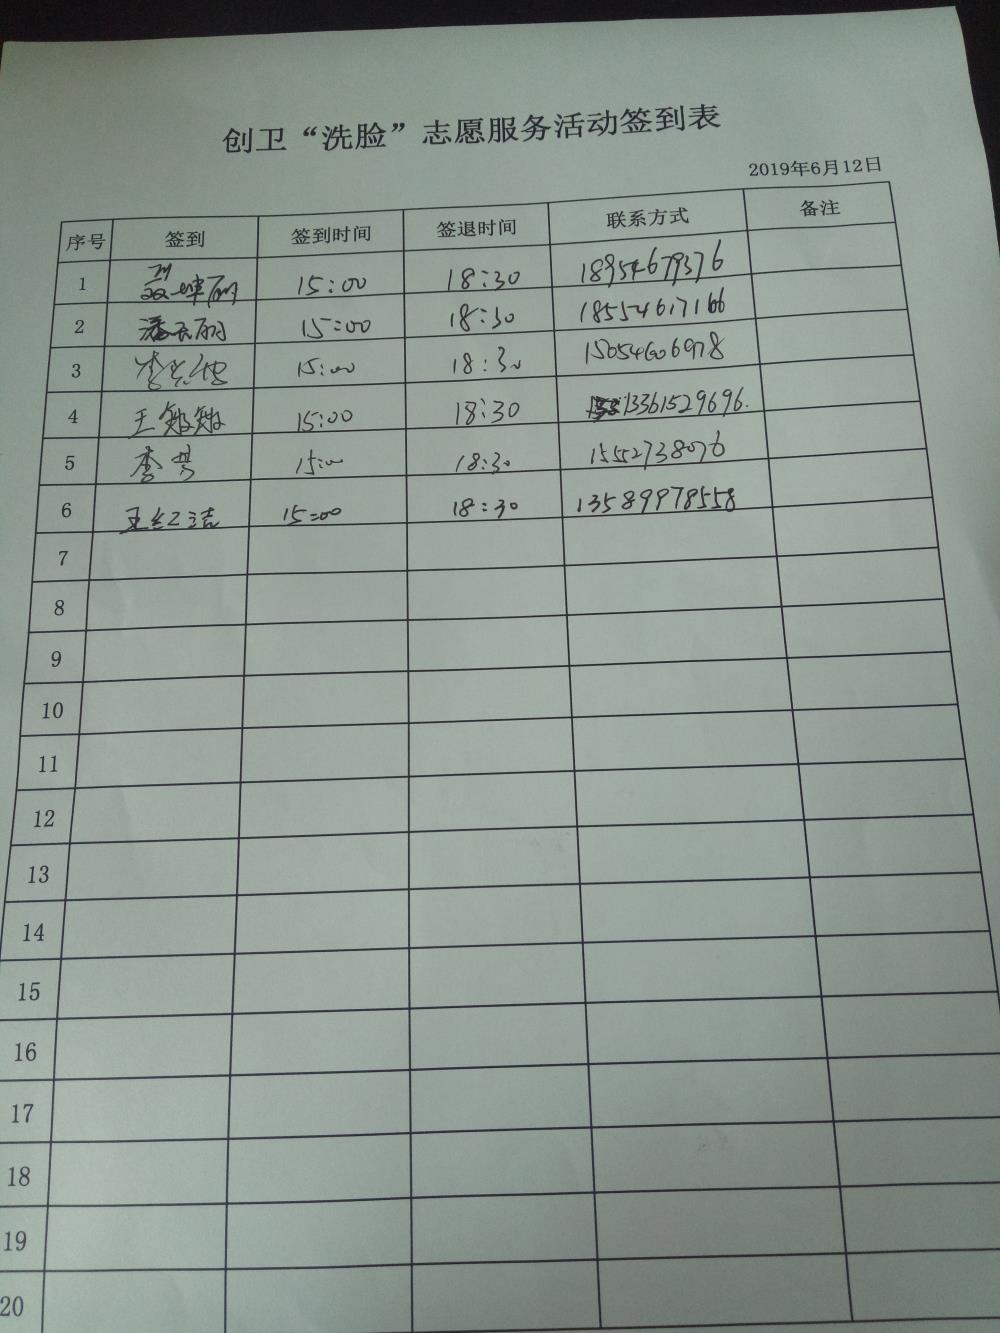 创卫“洗脸”志愿服务活动签到表
2019年6月12日
序号 签到 签到时间 签退时间 联系方式 备注
1 15:00 18:30 18954679376
2 潘云丽 15:00 18:30 18554617166
3 15:00 18:30 15054606978
4 王敏敏 15:00 18:30 13361529696.
5 李芸 15:00 18:30 15552738076
6 王红洁 15:00 18:30 13589978558
7
8
9
10
11
12
13
14
15
16
17
18
19
20